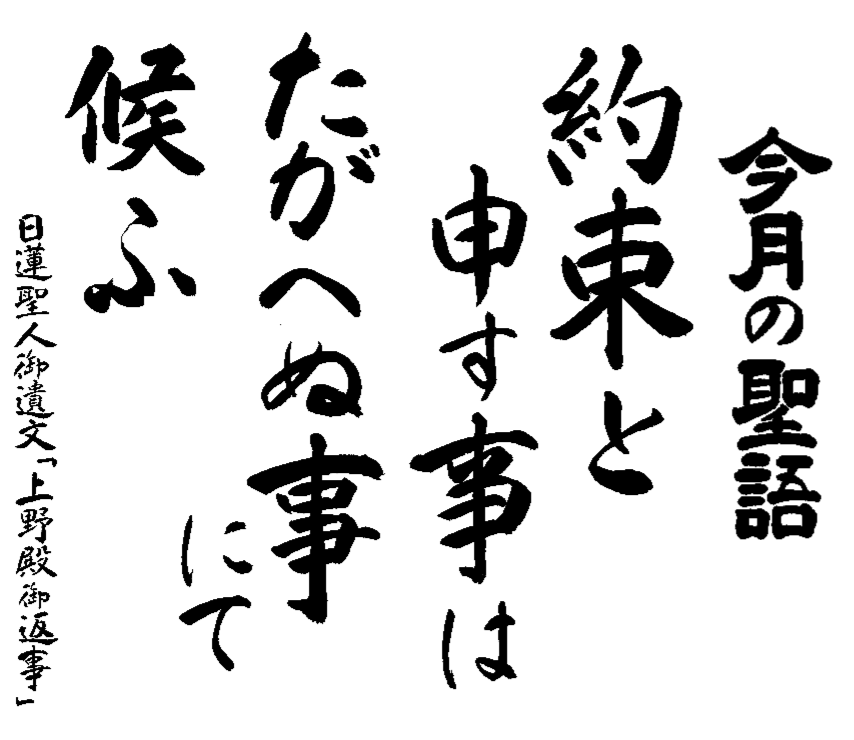 今月の聖語
約束と
申す事は
たがへぬ事
にて
候ふ
日蓮聖人御遺文「上野殿御返事」